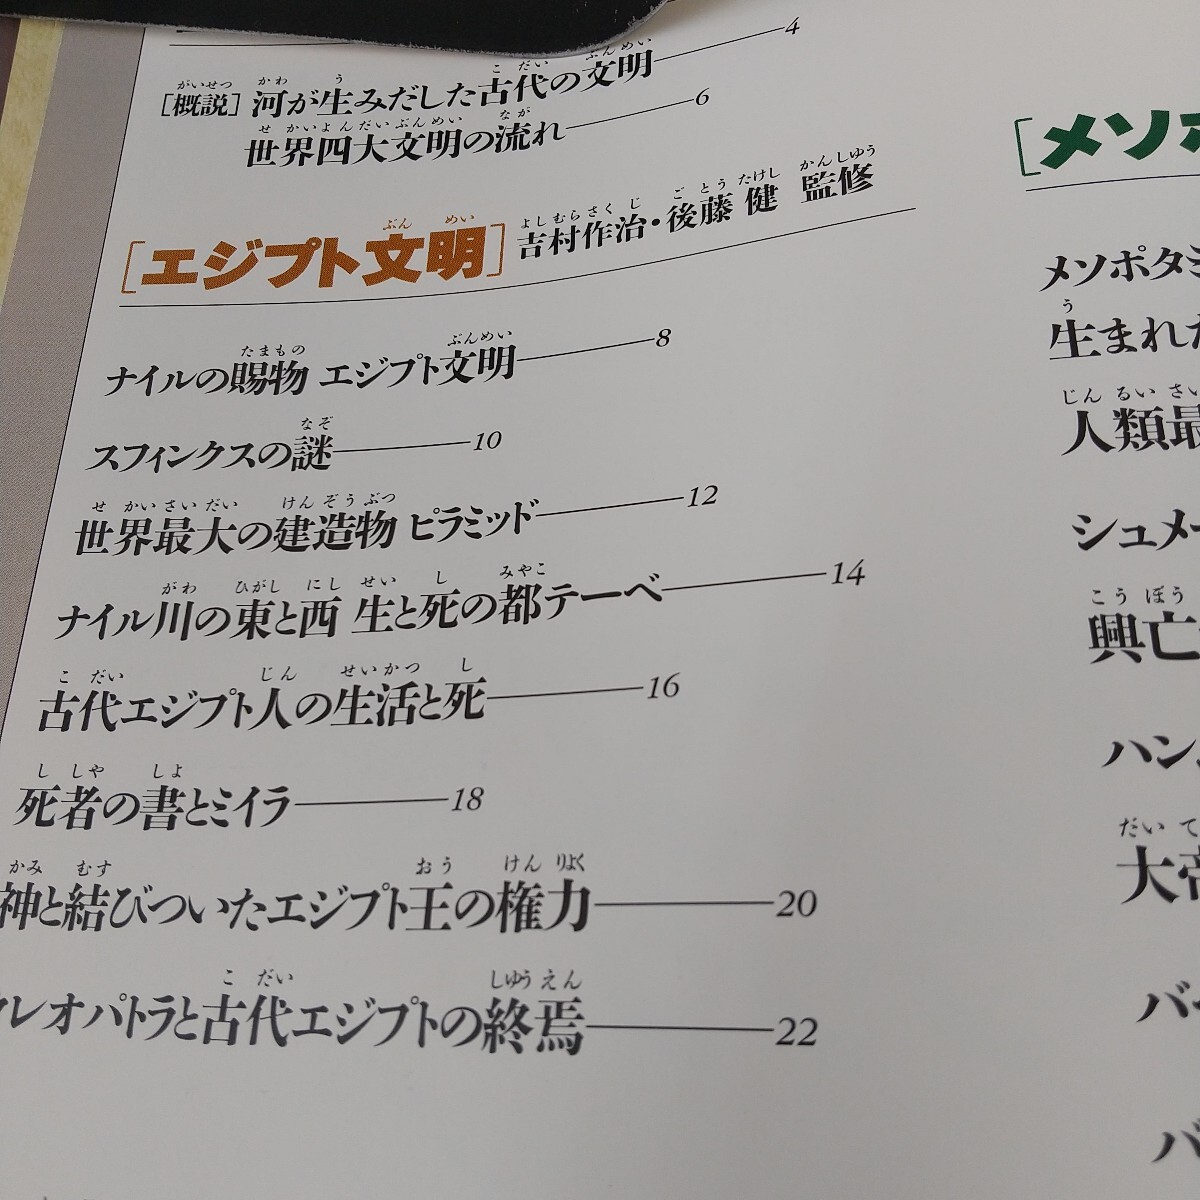 [概説] 河が生みだした古代の文明 4
世界四大文明の流れ 6
[エジプト文明] 吉村作治・後藤 健 監修
ナイルの賜物 エジプト文明 8
スフィンクスの謎 10
世界最大の建造物 ピラミッド 12
ナイル川の東と西 生と死の都テーベ 14
古代エジプト人の生活と死 16
死者の書とミイラ 18
神と結びついたエジプト王の権力 20
クレオパトラと古代エジプトの終焉 22
[メソポ
メソポタミ
生まれた
人類最
シュメー
興亡
ハン
大帝
バ
バ